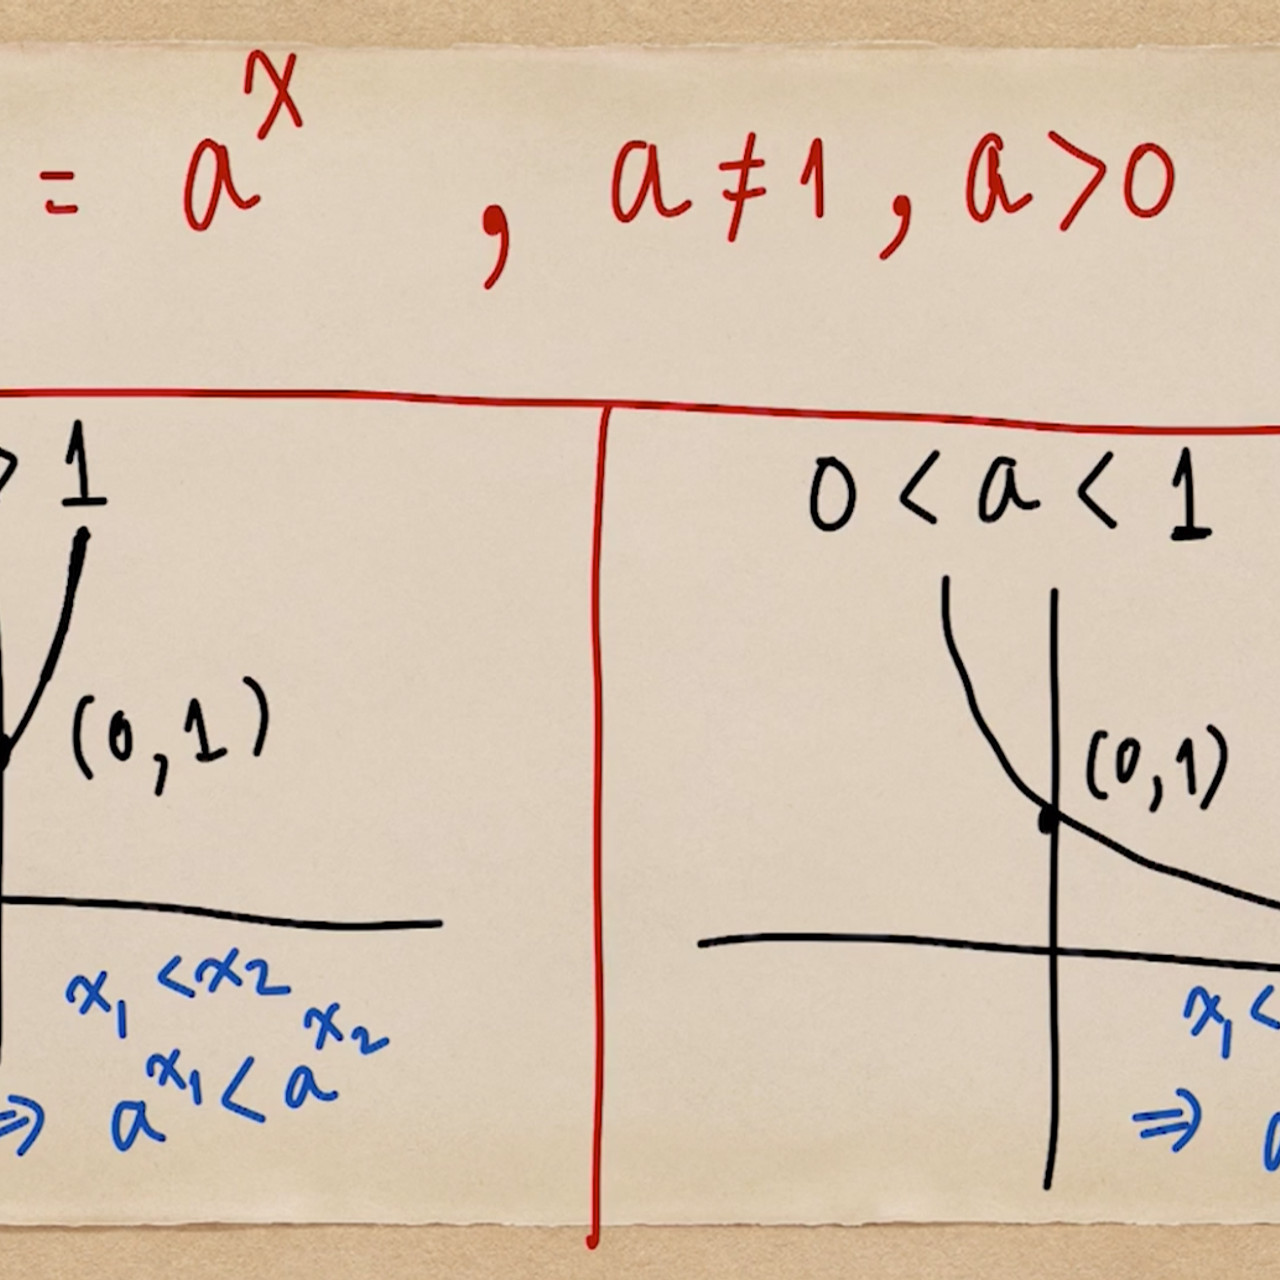 = a^x , a ≠ 1 , a > 0
> 1
(0,1)
x₁ < x₂
⇒ a^x₁ < a^x₂
0 < a < 1
(0,1)
x₁ <
⇒